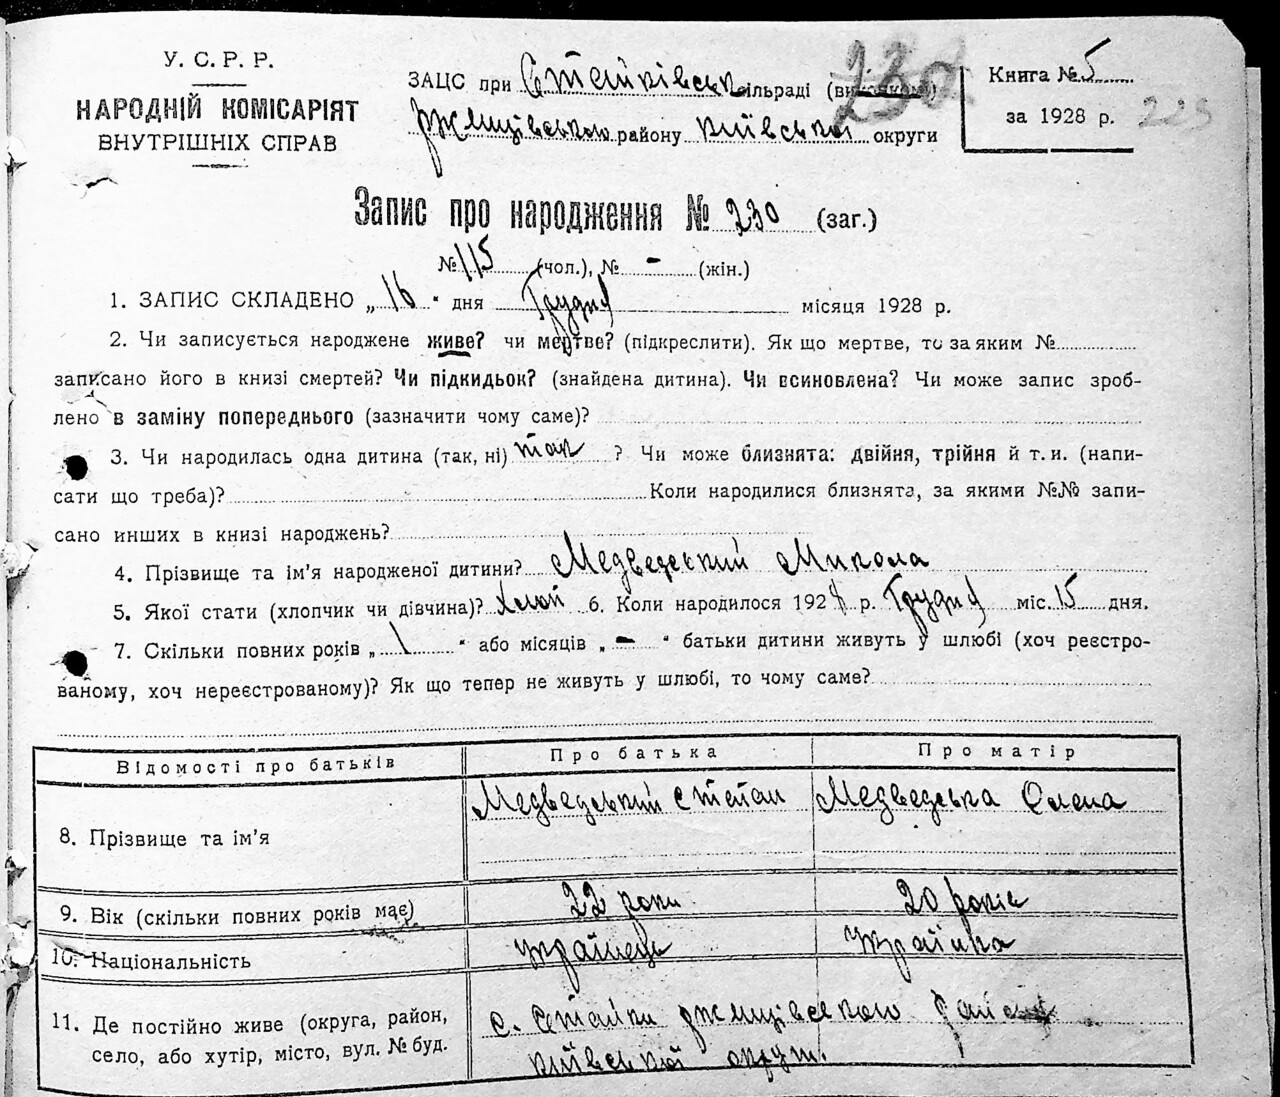 У. С. Р. Р.
НАРОДНІЙ КОМІСАРІЯТ
ВНУТРІШНІХ СПРАВ
ЗАЦС при Стайківськ сільраді (виконкомі)
Ржищівського району Київської округи
230
Книга № 5
за 1928 р. 223
Запис про народження № 230 (заг.)
№ 115 (чол.), № - (жін.)
1. ЗАПИС СКЛАДЕНО „16" дня Грудня місяця 1928 р.
2. Чи записується народжене живе? чи мертве? (підкреслити). Як що мертве, то за яким №
записано його в книзі смертей? Чи підкидьок? (знайдена дитина). Чи всиновлена? Чи може запис зроб-
лено в заміну попереднього (зазначити чому саме)?
3. Чи народилась одна дитина (так, ні) так ? Чи може близнята: двійня, трійня й т. и. (напи-
сати що треба)? Коли народилися близнята, за якими №№ запи-
сано инших в книзі народжень?
4. Прізвище та ім'я народженої дитини? Медведський Микола
5. Якої стати (хлопчик чи дівчина)? 6. Коли народилося 1928 р. Грудня міс. 15 дня.
7. Скільки повних років „ 1 " або місяців „ - " батьки дитини живуть у шлюбі (хоч реєстро-
ваному, хоч нереєстрованому)? Як що тепер не живуть у шлюбі, то чому саме?
Відомості про батьків Про батька Про матір
8. Прізвище та ім'я Медведський Степан Медведська Олена
9. Вік (скільки повних років має) 22 роки 20 років
10. Національність Українець Українка
11. Де постійно живе (округа, район, с. Стайки Ржищівського
село, або хутір, місто, вул. № буд. Київської округи.